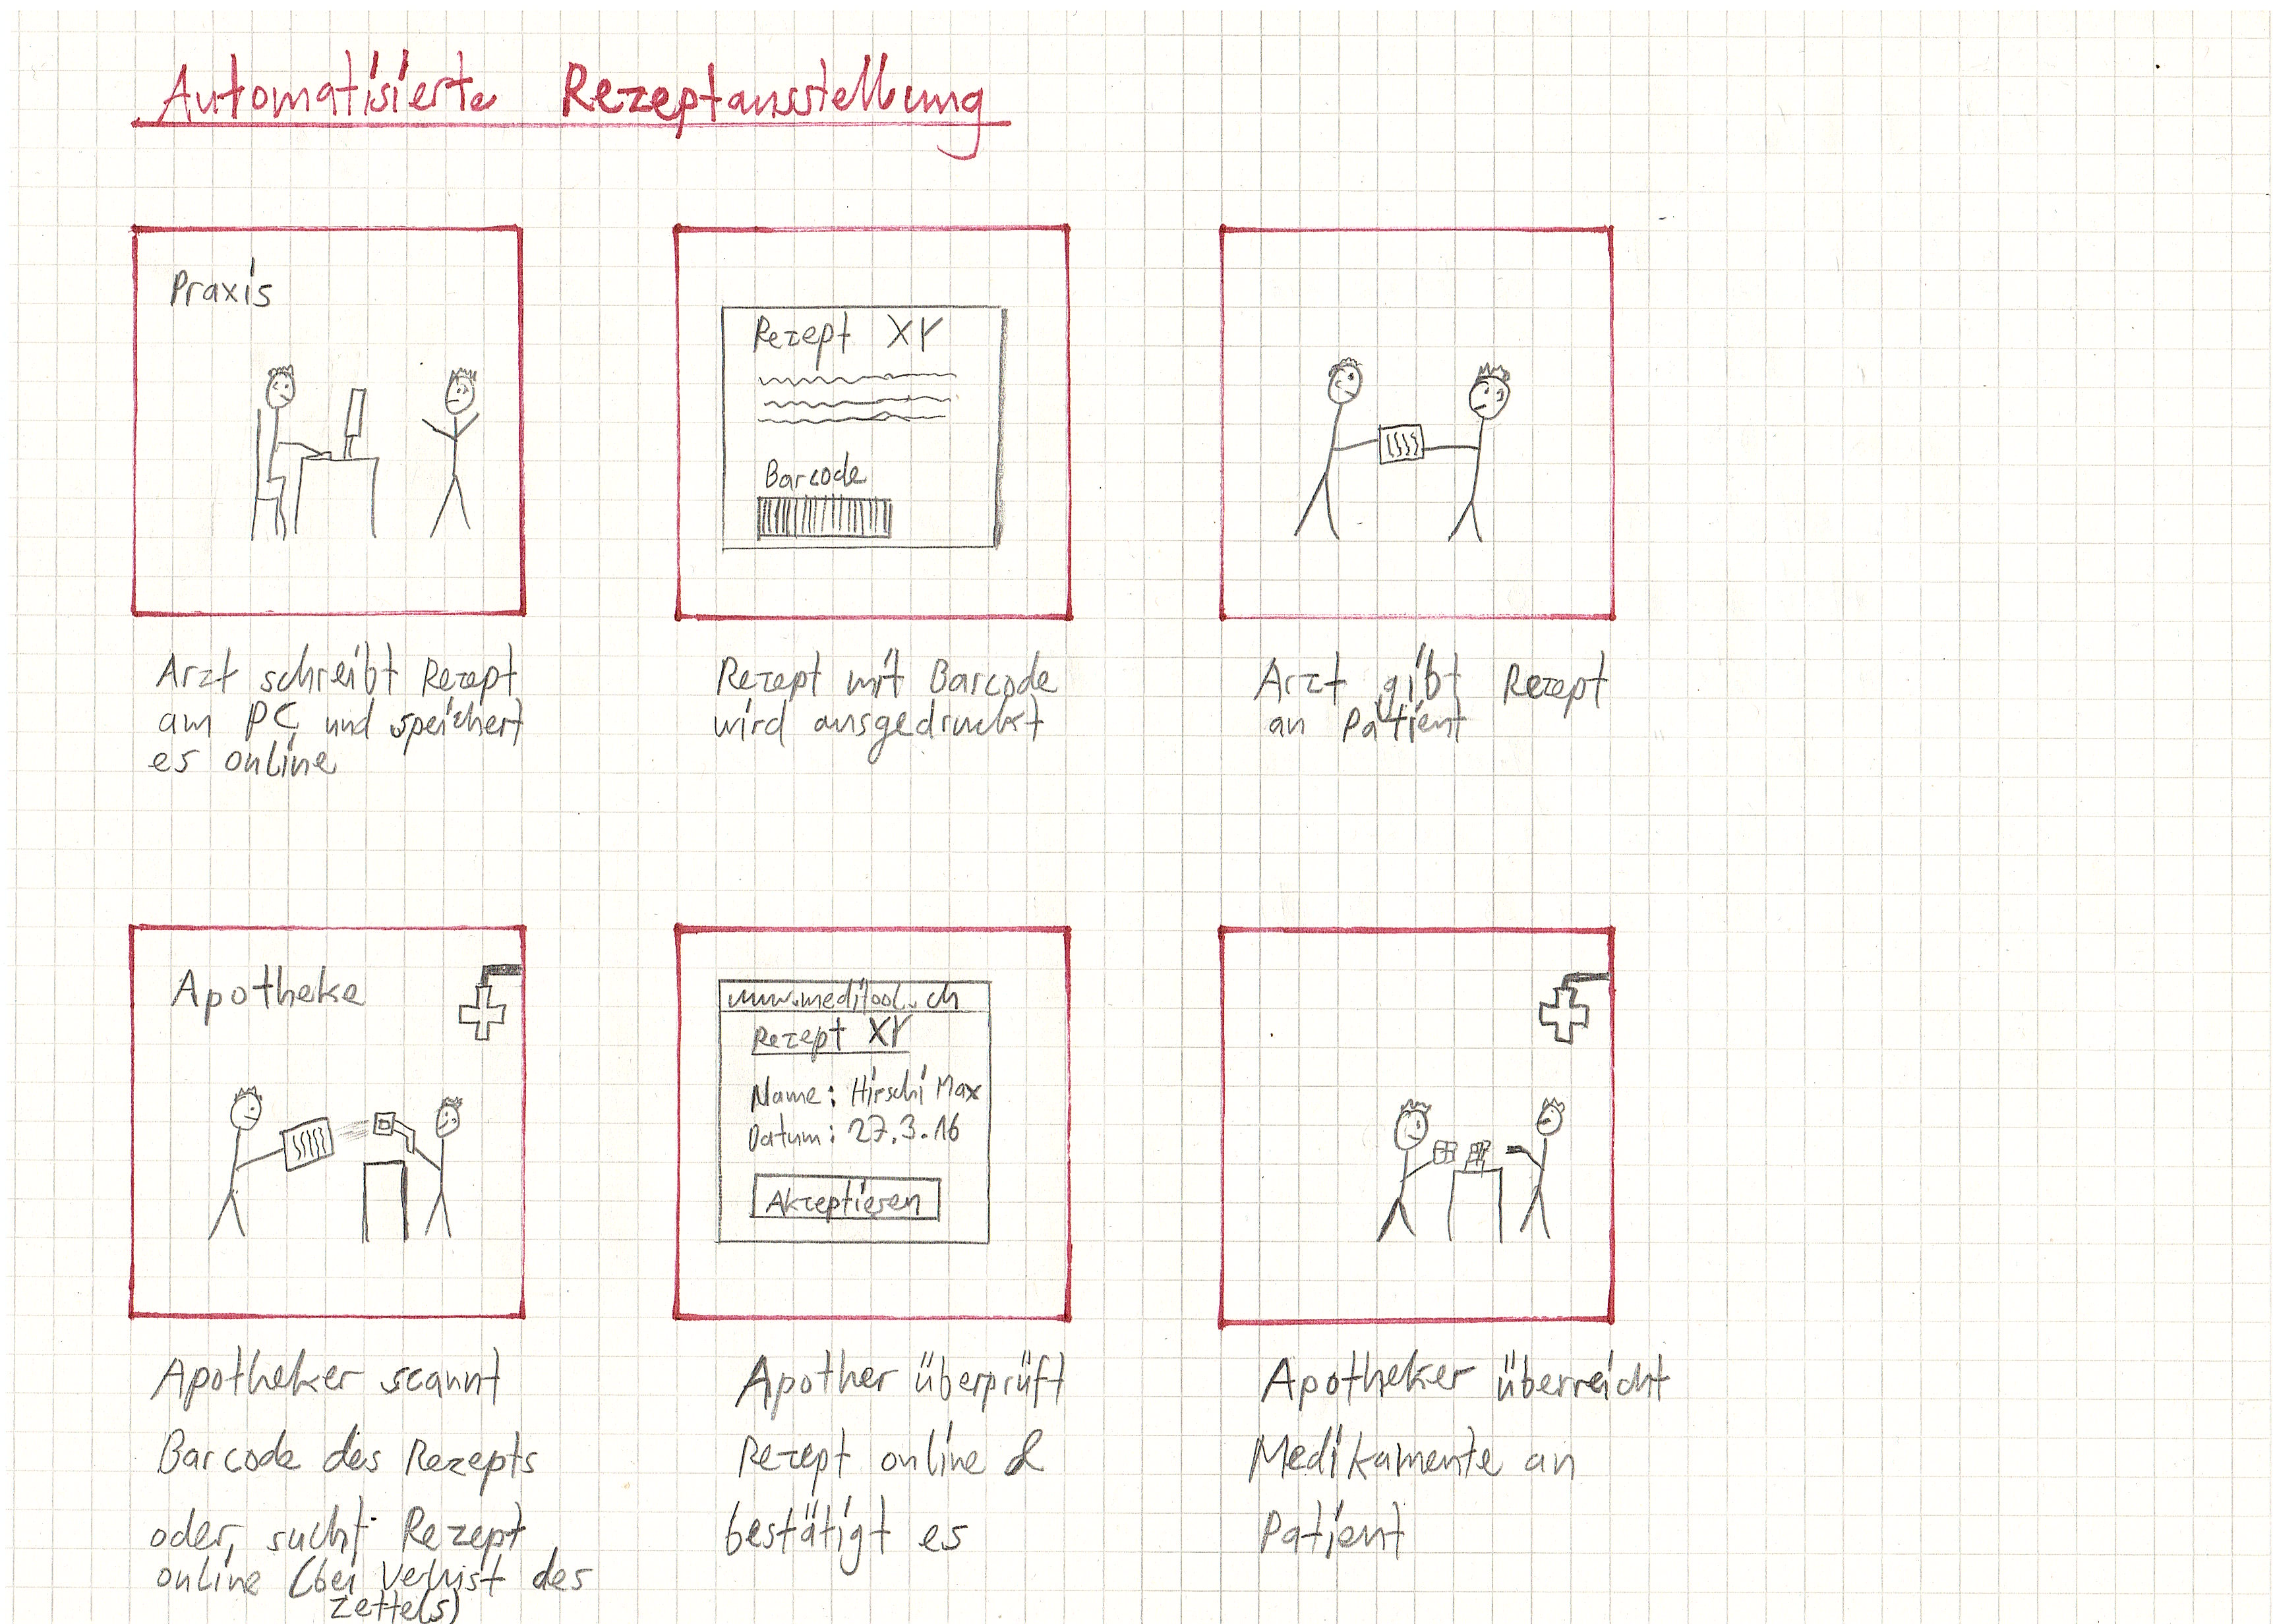 Automatisierte Rezeptausstellung
Praxis
Arzt schreibt Rezept
am PC und speichert
es online
Rezept XY
Barcode
Rezept mit Barcode
wird ausgedruckt
Arzt gibt Rezept
an Patient
Apotheke
Apotheker scannt
Barcode des Rezepts
oder, sucht Rezept
online (bei Verlust des
Zettels)
www.meditool.ch
Rezept XY
Name: Hirschi Max
Datum: 27.3.16
Akzeptieren
Apother überprüft
Rezept online &
bestätigt es
Apotheker überreicht
Medikamente an
Patient